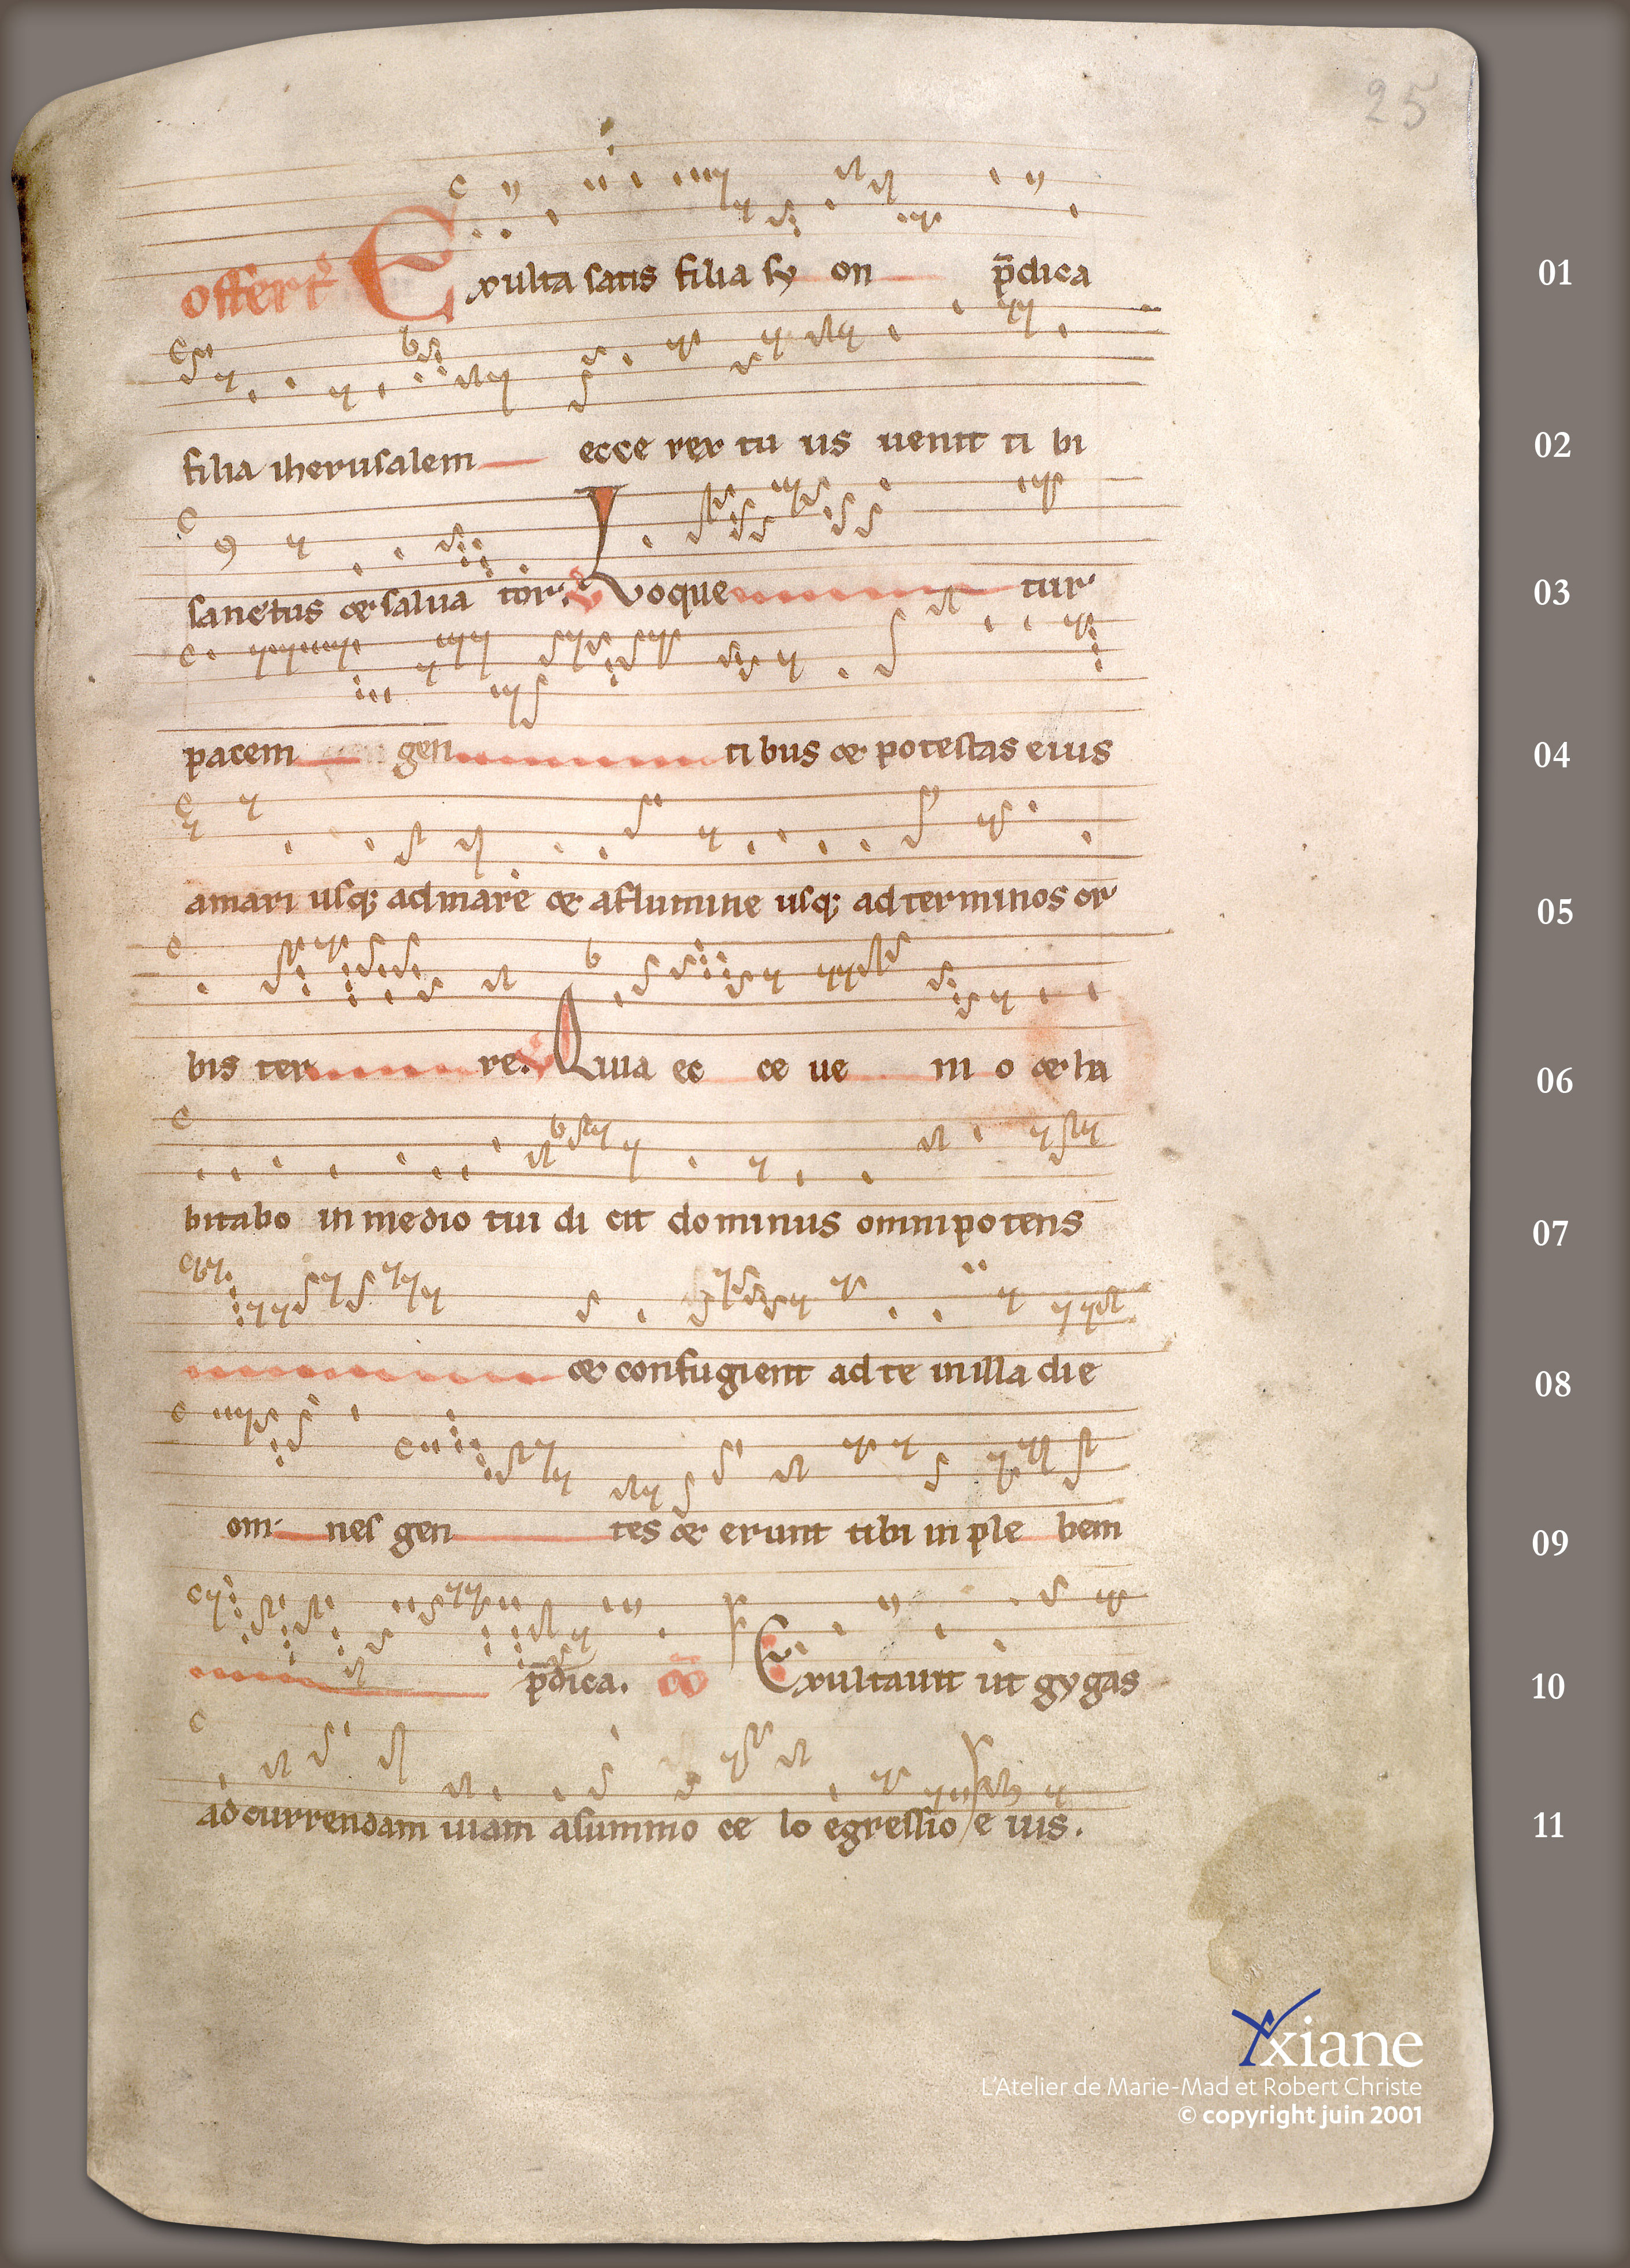 25
offert̄ Exulta satis filia sy on p̄dica 01
filia iherusalem ecce rex tu us uenit ti bi 02
sanctus & salua tor. ℣ Loque tur 03
pacem gen ti bus & potestas eius 04
amari usq; ad mare & a flumine usq; ad terminos or 05
bis ter re. ℣ Quia ec ce ue ni o & ha 06
bitabo in medio tui di cit dominus omnipotens 07
& confugient ad te in illa die 08
om nes gen tes & erunt tibi in ple bem 09
p̄dica. c̄o Exultauit ut gygas 10
ad currendam uiam a summo ce lo egressio e ius. 11
Yxiane
L'Atelier de Marie-Mad et Robert Christe
© copyright juin 2001